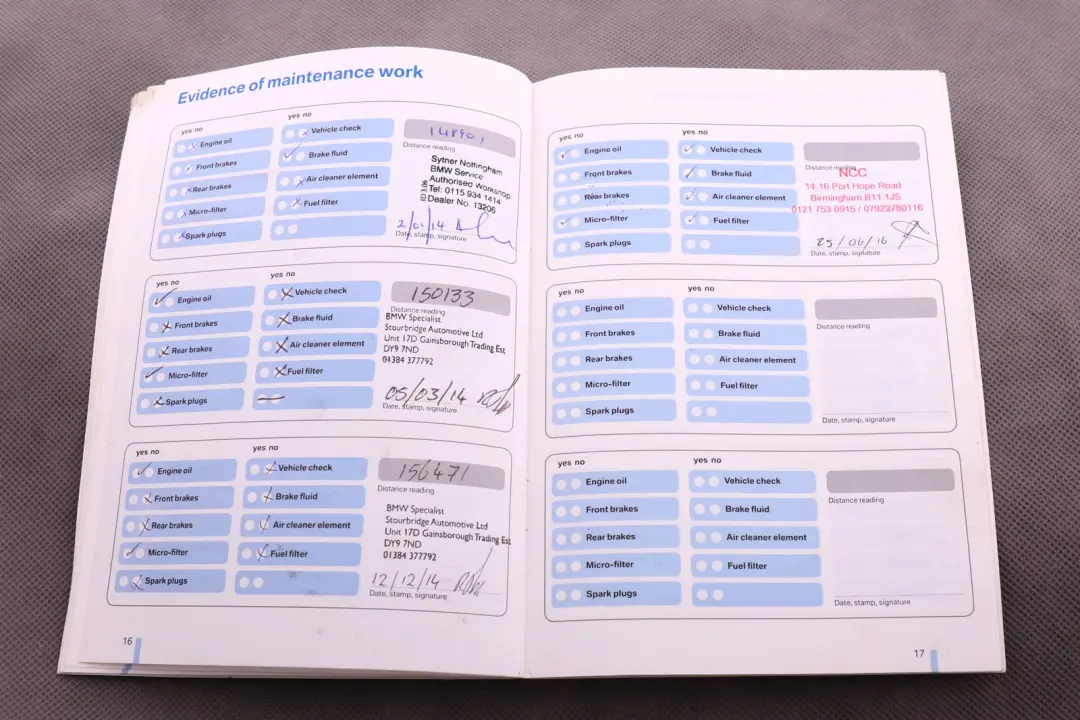 Evidence of maintenance work
yes no
yes no
Engine oil
Vehicle check
Front brakes
Brake fluid
Rear brakes
Air cleaner element
Micro-filter
Fuel filter
Spark plugs
148901
Distance reading
Sytner Nottingham
BMW Service
Authorised Workshop
Tel: 0115 934 1414
Dealer No. 13206
2/01/14
Date, stamp, signature
yes no
yes no
Engine oil
Vehicle check
Front brakes
Brake fluid
Rear brakes
Air cleaner element
Micro-filter
Fuel filter
Spark plugs
150133
Distance reading
BMW Specialist
Stourbridge Automotive Ltd
Unit 17D Gainsborough Trading Est
DY9 7ND
01384 377792
05/03/14
Date, stamp, signature
yes no
yes no
Engine oil
Vehicle check
Front brakes
Brake fluid
Rear brakes
Air cleaner element
Micro-filter
Fuel filter
Spark plugs
156471
Distance reading
BMW Specialist
Stourbridge Automotive Ltd
Unit 17D Gainsborough Trading Est
DY9 7ND
01384 377792
12/12/14
Date, stamp, signature
16
yes no
yes no
Engine oil
Vehicle check
Front brakes
Brake fluid
Rear brakes
Air cleaner element
Micro-filter
Fuel filter
Spark plugs
Distance reading
NCC
14-16 Port Hope Road
Birmingham B11 1JS
0121 753 0915 / 07922780116
25/06/16
Date, stamp, signature
yes no
yes no
Engine oil
Vehicle check
Front brakes
Brake fluid
Rear brakes
Air cleaner element
Micro-filter
Fuel filter
Spark plugs
Distance reading
Date, stamp, signature
yes no
yes no
Engine oil
Vehicle check
Front brakes
Brake fluid
Rear brakes
Air cleaner element
Micro-filter
Fuel filter
Spark plugs
Distance reading
Date, stamp, signature
17